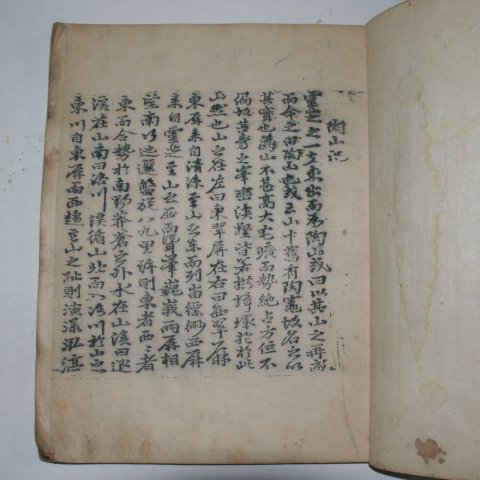 陶山記
靈芝之一支東出而爲陶山或曰以其山之再成
而命之曰陶山也或云山中舊有陶竈故名之以
其實也爲山不甚高大宅曠而勢絶占方位不
偏故其旁之峯巒溪壑皆若拱揖環抱於此
山然也山之在左曰東翠屛在右曰西翠屛
東屛來自淸凉至山之東而列岫縹緲西屛
來自靈芝至山之西而聳峯巍峨兩屛相
望南行迤邐盤旋八九里許則東者西〻者
東而合勢於南野莽蒼之外水在山後曰退
溪在山南曰洛川溪循山北而入洛川於山之
東川自東屛而西趨至山之趾則演漾泓渟